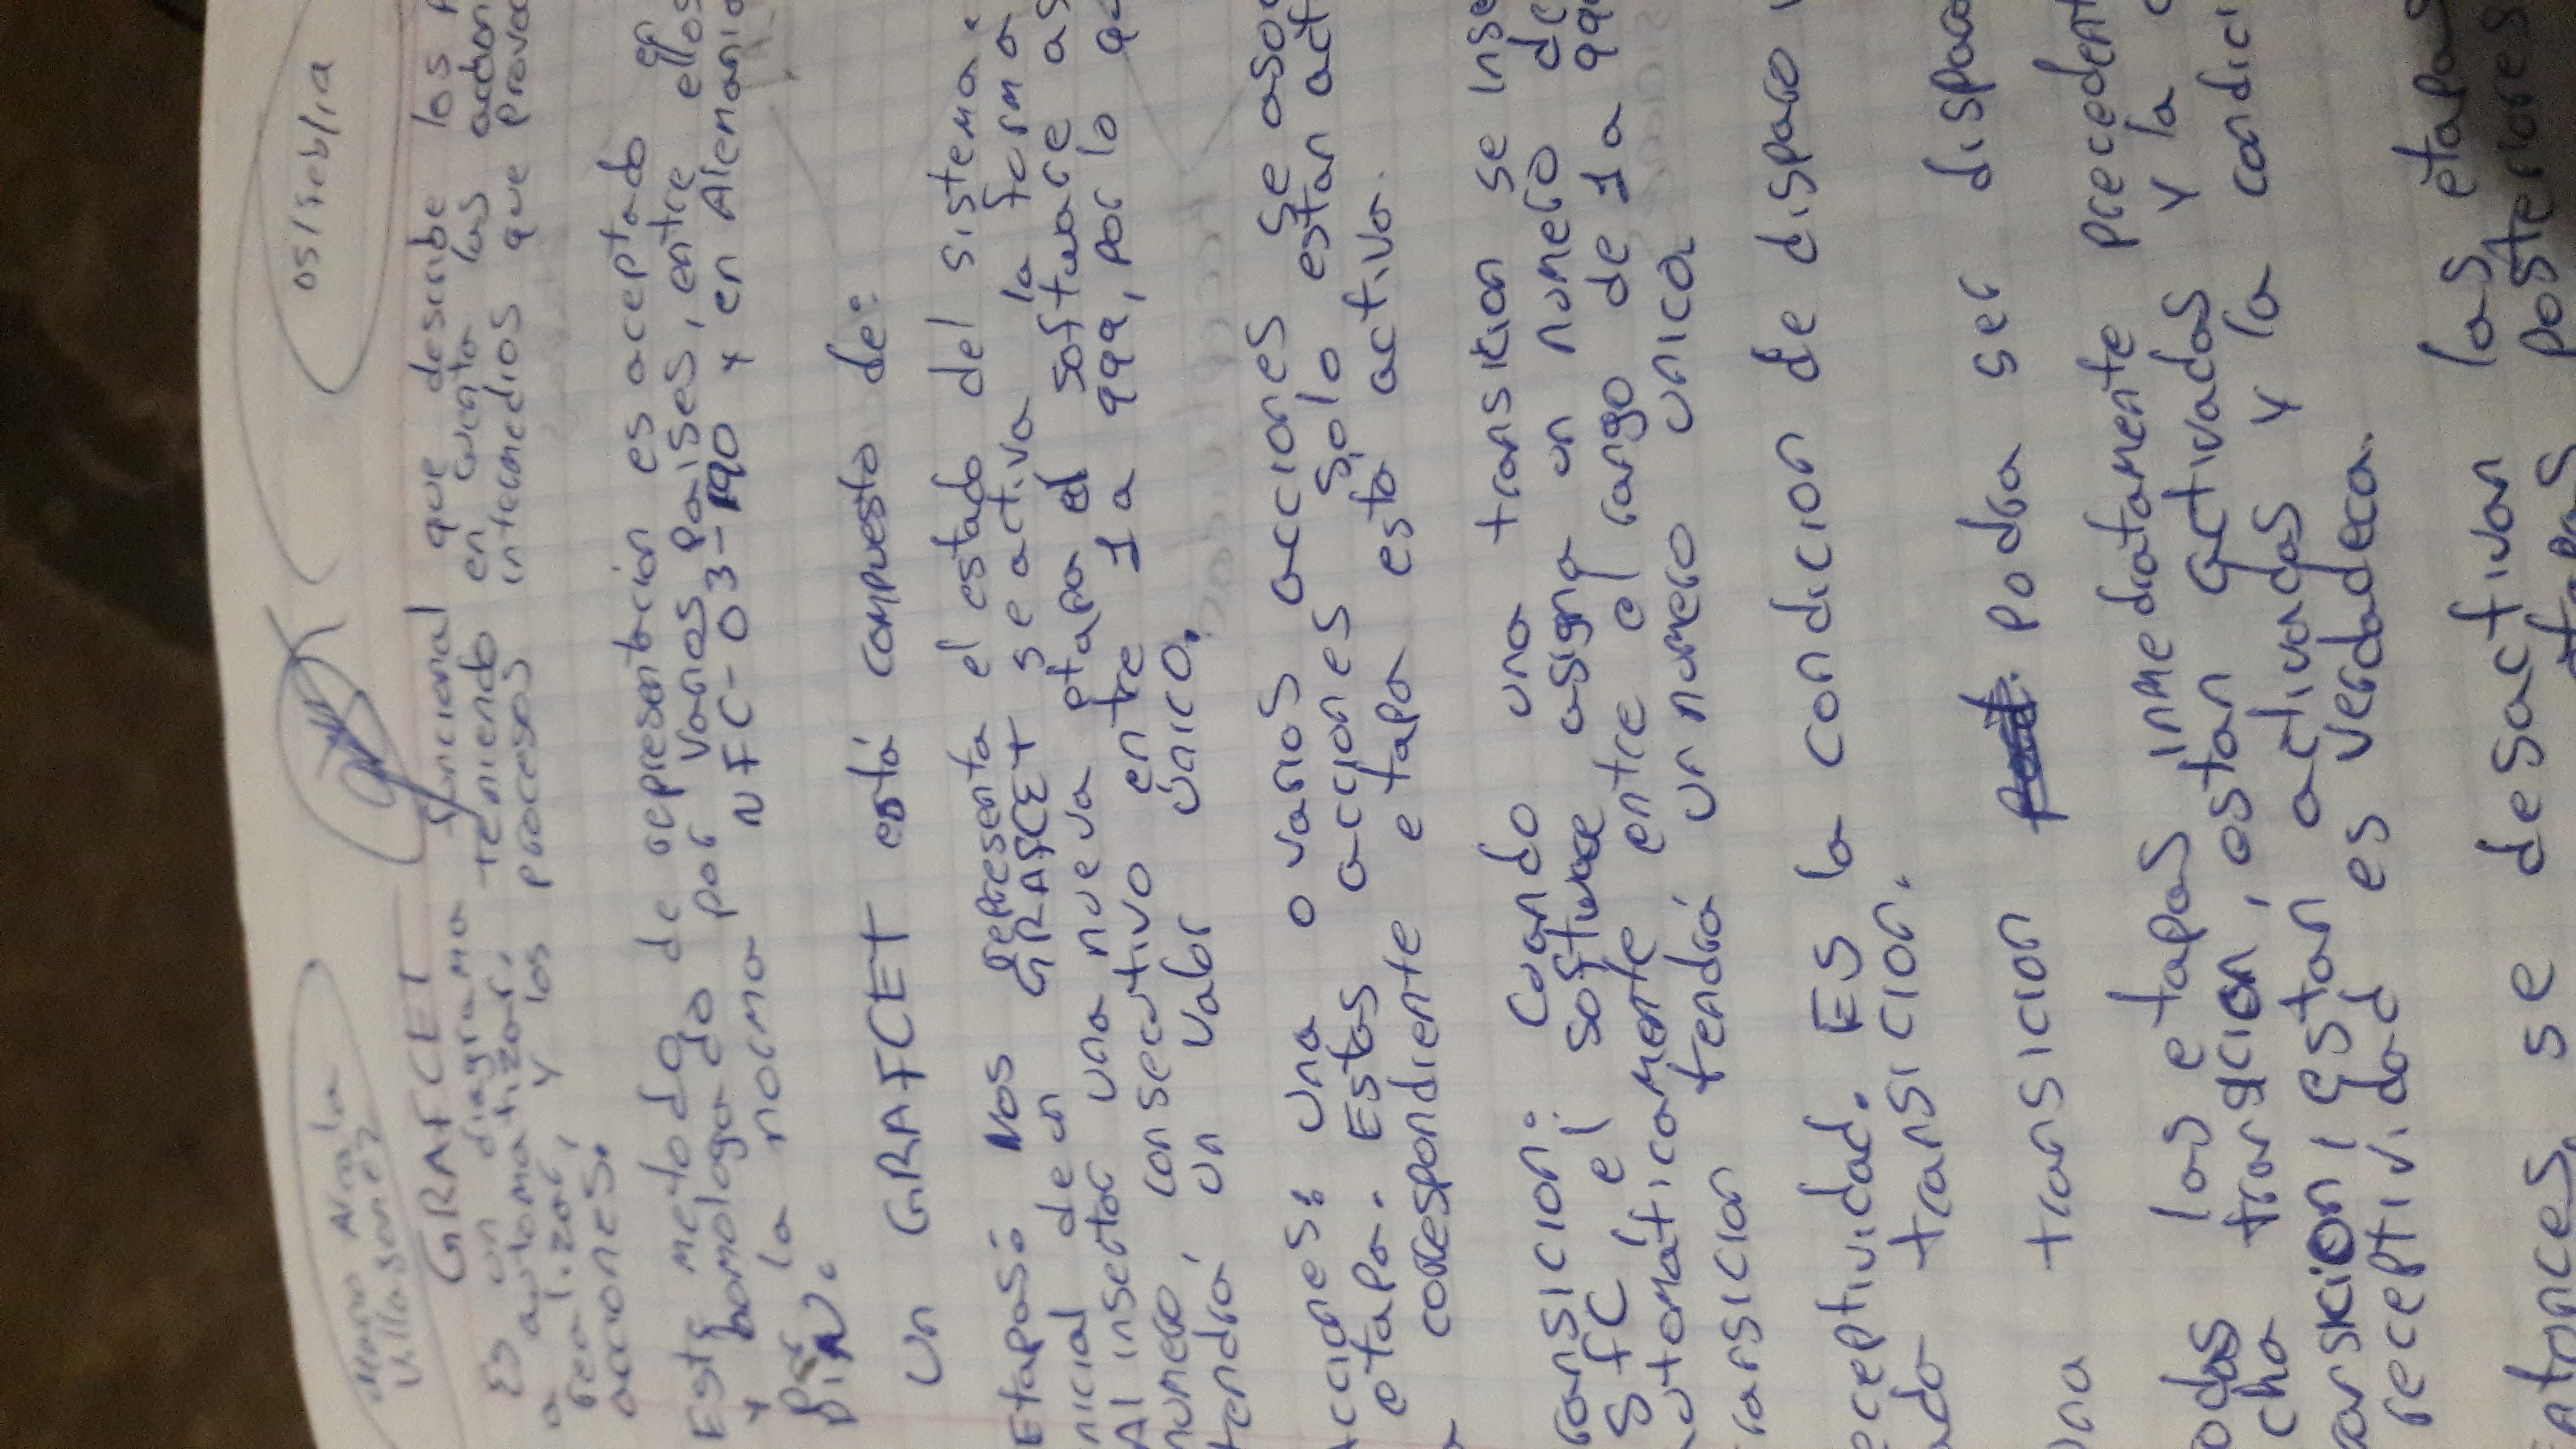 05/feb/19
Villagomez
GRAFCET
Es un diagrama funcional que describe los p
a automatizar. teniendo en cuenta las accion
realizar, y los procesos intermedios que provoc
acciones.
Este metodo de representación es aceptado en
y homologado por varios paises, entre ellos
Por la norma NFC-03-190 y en Alemania
DIN.
Un GRAFCET está compuesto de:
Etapas: Nos representa el estado del sistema.
nicial de un GRAFCET se activa la forma
Al insertar una nueva etapa el software as
numero, consecutivo entre 1 a 999, por lo q
tendrá un valor único.
cciones: Una o varias acciones se aso
etapa. Estas acciones solo estan act
a correspondiente etapa está activa.
ransicion: Cuando una transicion se inse
SFC, el software, asigna un numero de
utomáticamente entre el rango de 1 a 99
ransicion tendrá un numero unica
eceptividad. ES la condicion de disparo
ada transicion.
una transicion podra ser dispara
odas las etapas inmediatamente precedent
cha transicion, estan activadas y la c
ransicion, estan activadas y la condici
receptividad es verdadera.
ntonces, se desactivan las etapas
etapas posteriores